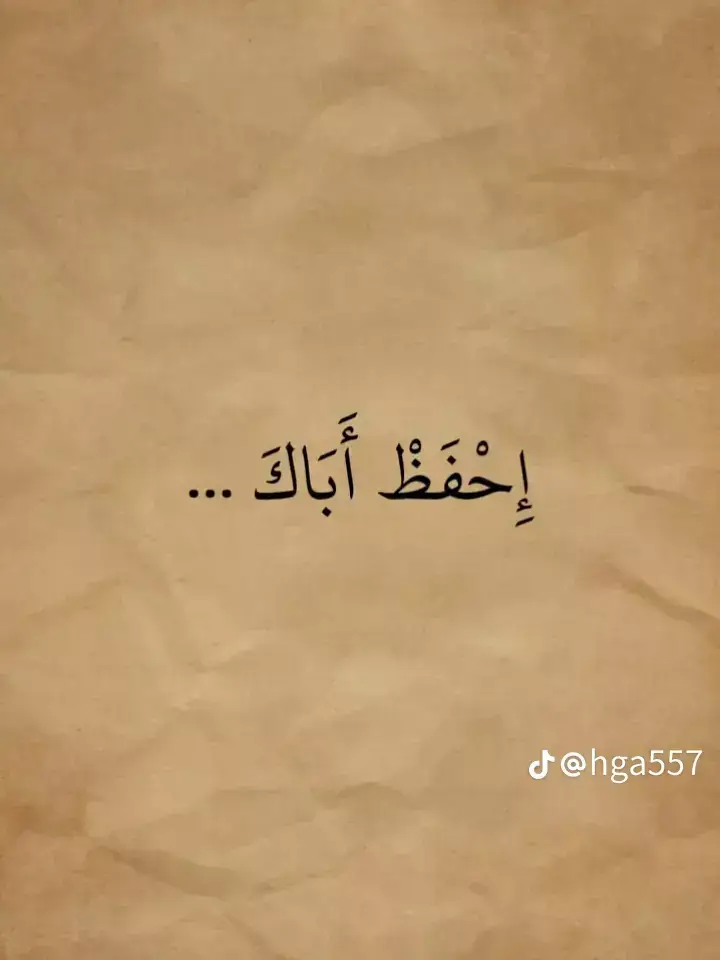 إِحْفَظْ أَبَاكَ ...
@hga557